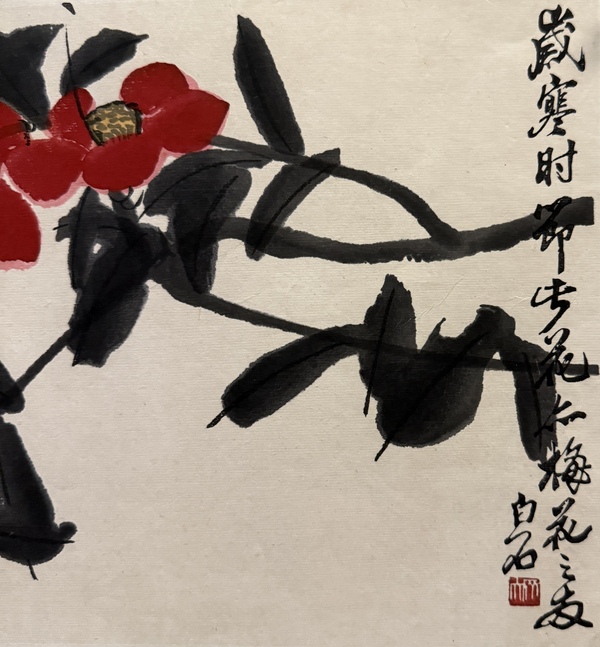 歲寒时節此花亦梅花之友
白石